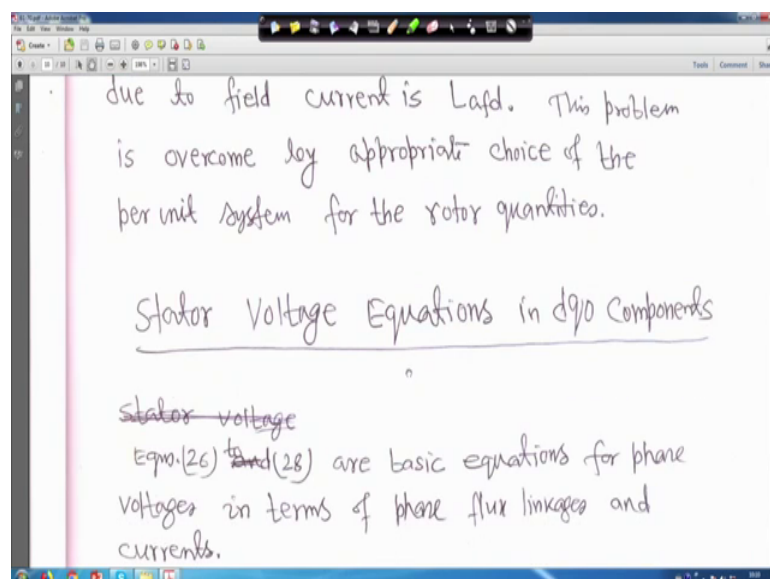 81-70.pdf - Adobe Acrobat Pro
File Edit View Window Help
Create
Tools Comment Share
due to field current is Lafd. This problem
is overcome by appropriate choice of the
per unit system for the rotor quantities.
Stator Voltage Equations in dq0 Components
Stator voltage
Eqns.(26) to and (28) are basic equations for phase
voltages in terms of phase flux linkages and
currents.